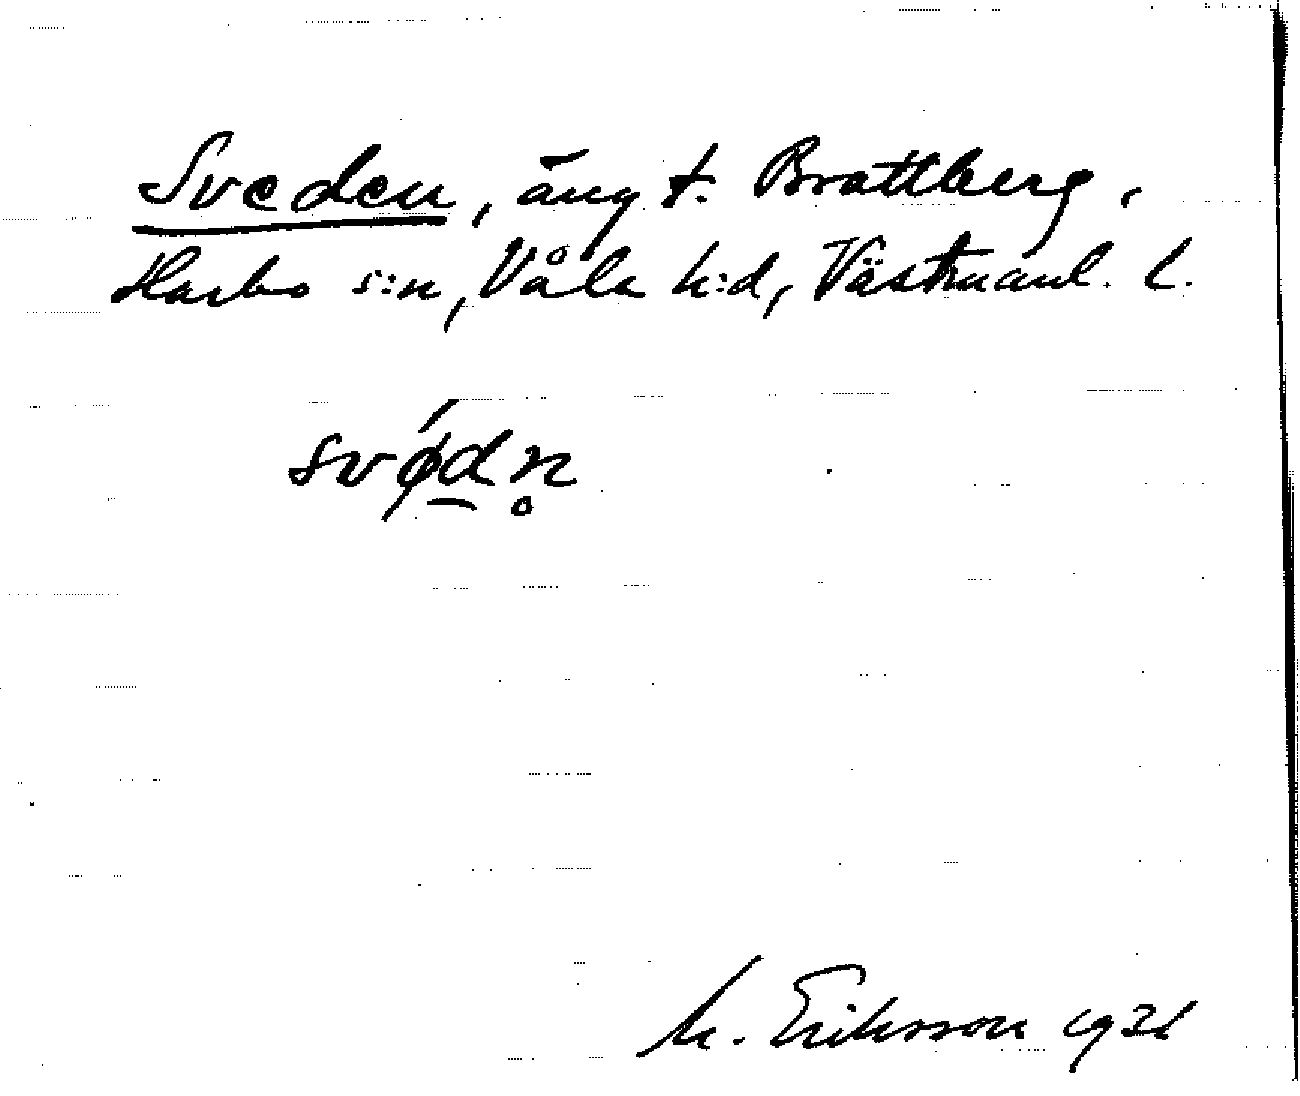 Sveden, äng t. Brattberg,
Harbo s:n, Våla h:d, Västmanl. l.
svǿd̲n̥
M. Eriksson 1931